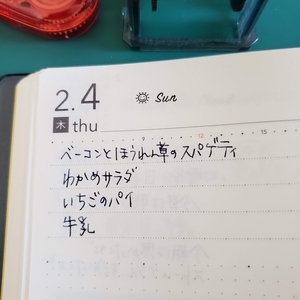 2.4 Sun
木 thu
9 12 15
ベーコンとほうれん草のスパゲティ
わかめサラダ
いちごのパイ
牛乳